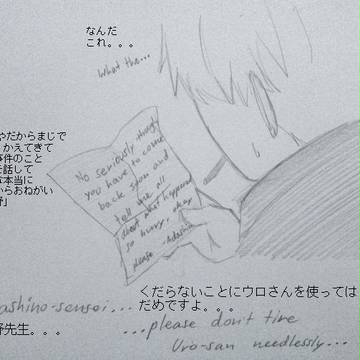 なんだ
これ。。。
What the...
やだからまじで
かえてきて
事件のこと
話して
本当に
からおねがい
野」
No seriously though
you have to come
back soon and
tell me all
about what happened
so hurry, okay
please -Adashino
くだらないことにウロさんを使っては
だめですよ。。。
ashino-sensei...
野先生。。。
...please don't tire
Uro-san needlessly...